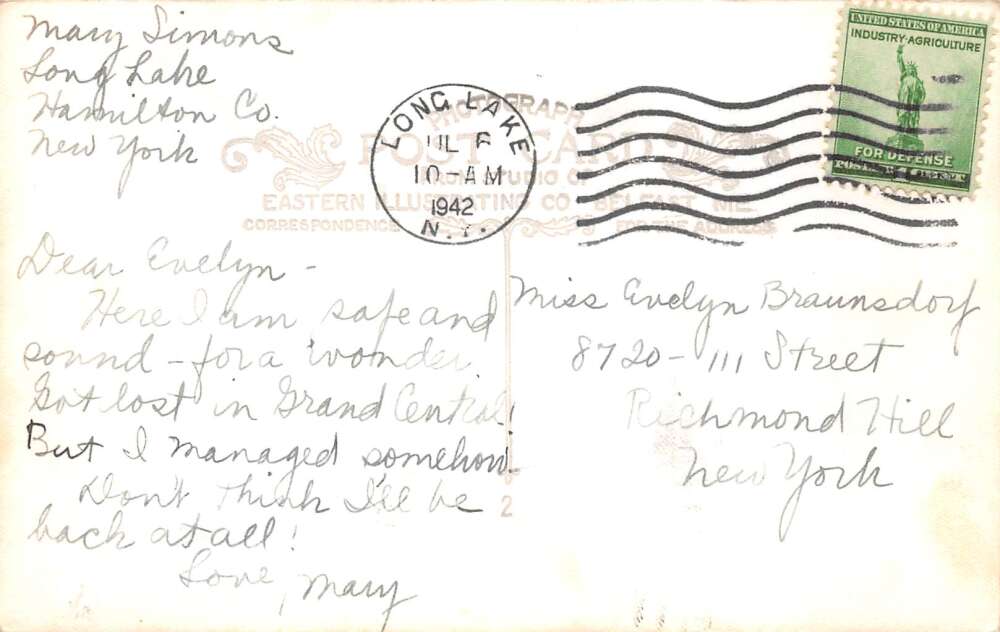 Mary Simons
Long Lake
Hamilton Co.
New York
UNITED STATES OF AMERICA
INDUSTRY·AGRICULTURE
FOR DEFENSE
LONG LAKE
10-AM
1942
N.Y.
PHOTOGRAPH
POST CARD
STUDIO OF
EASTERN ILLUSTRATING CO. BELFAST ME.
CORRESPONDENCE
FOR THE ADDRESS
Dear Evelyn -
Here I am safe and
sound - for a wonder.
Got lost in Grand Central!
But I managed somehow.
Don't think I'll be
back at all!
Love, Mary
Miss Evelyn Braunsdorf
8720 - 111 Street
Richmond Hill
New York
2